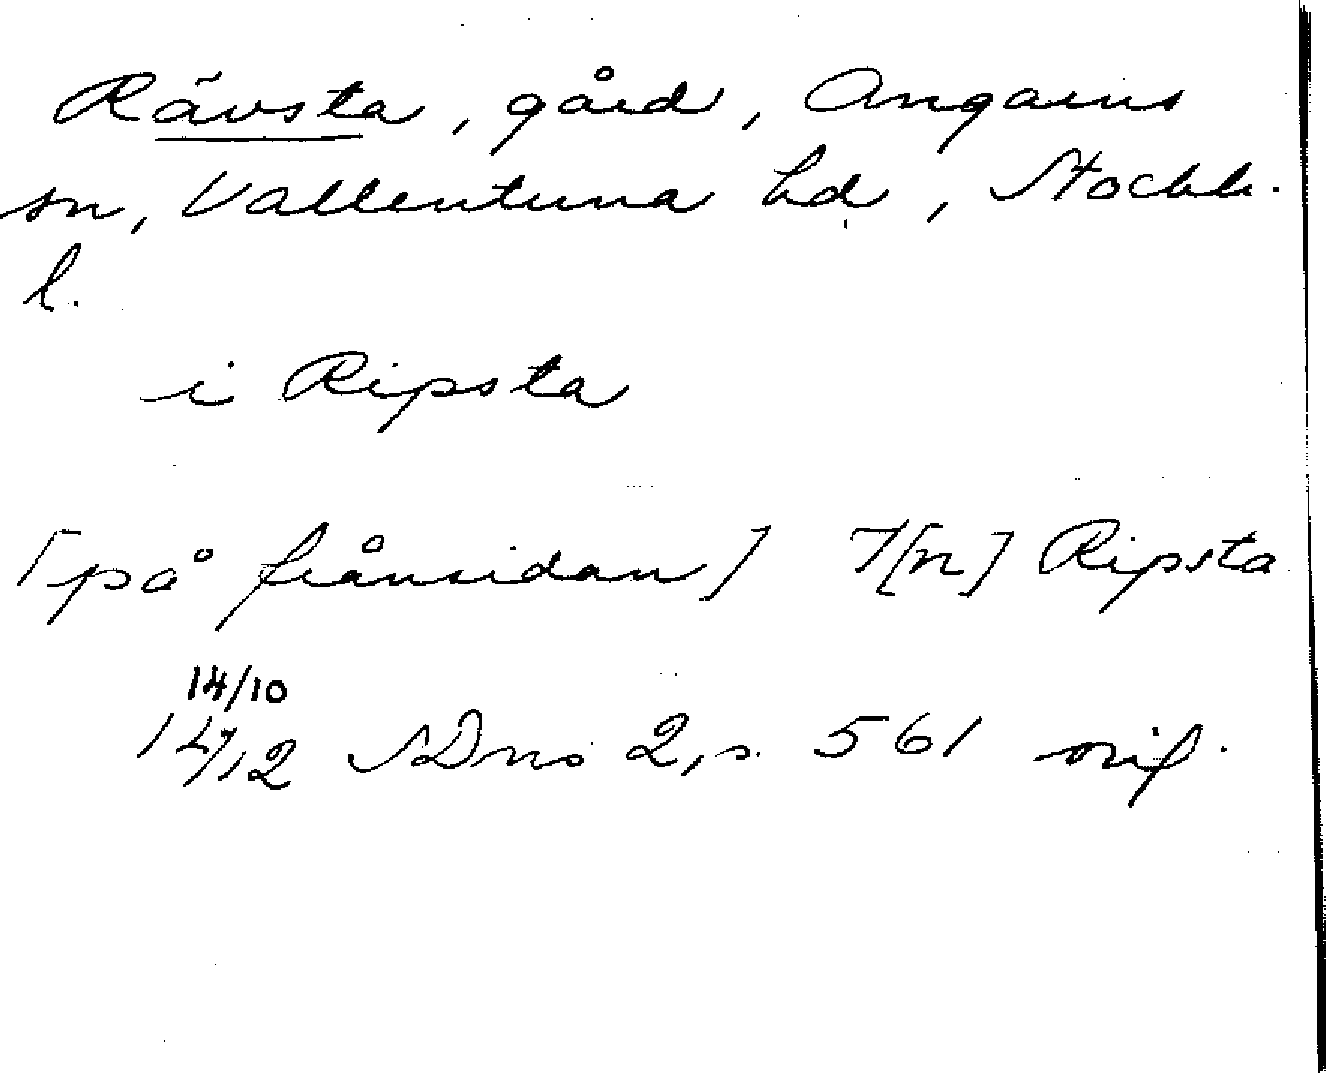 Rävsta, gård, Angarns
sn, Vallentuna hd, Stockh.
l.
i Ripsta
[på frånsidan] J[n] Ripsta
14/10
1412 SDns 2, s. 561 orif.